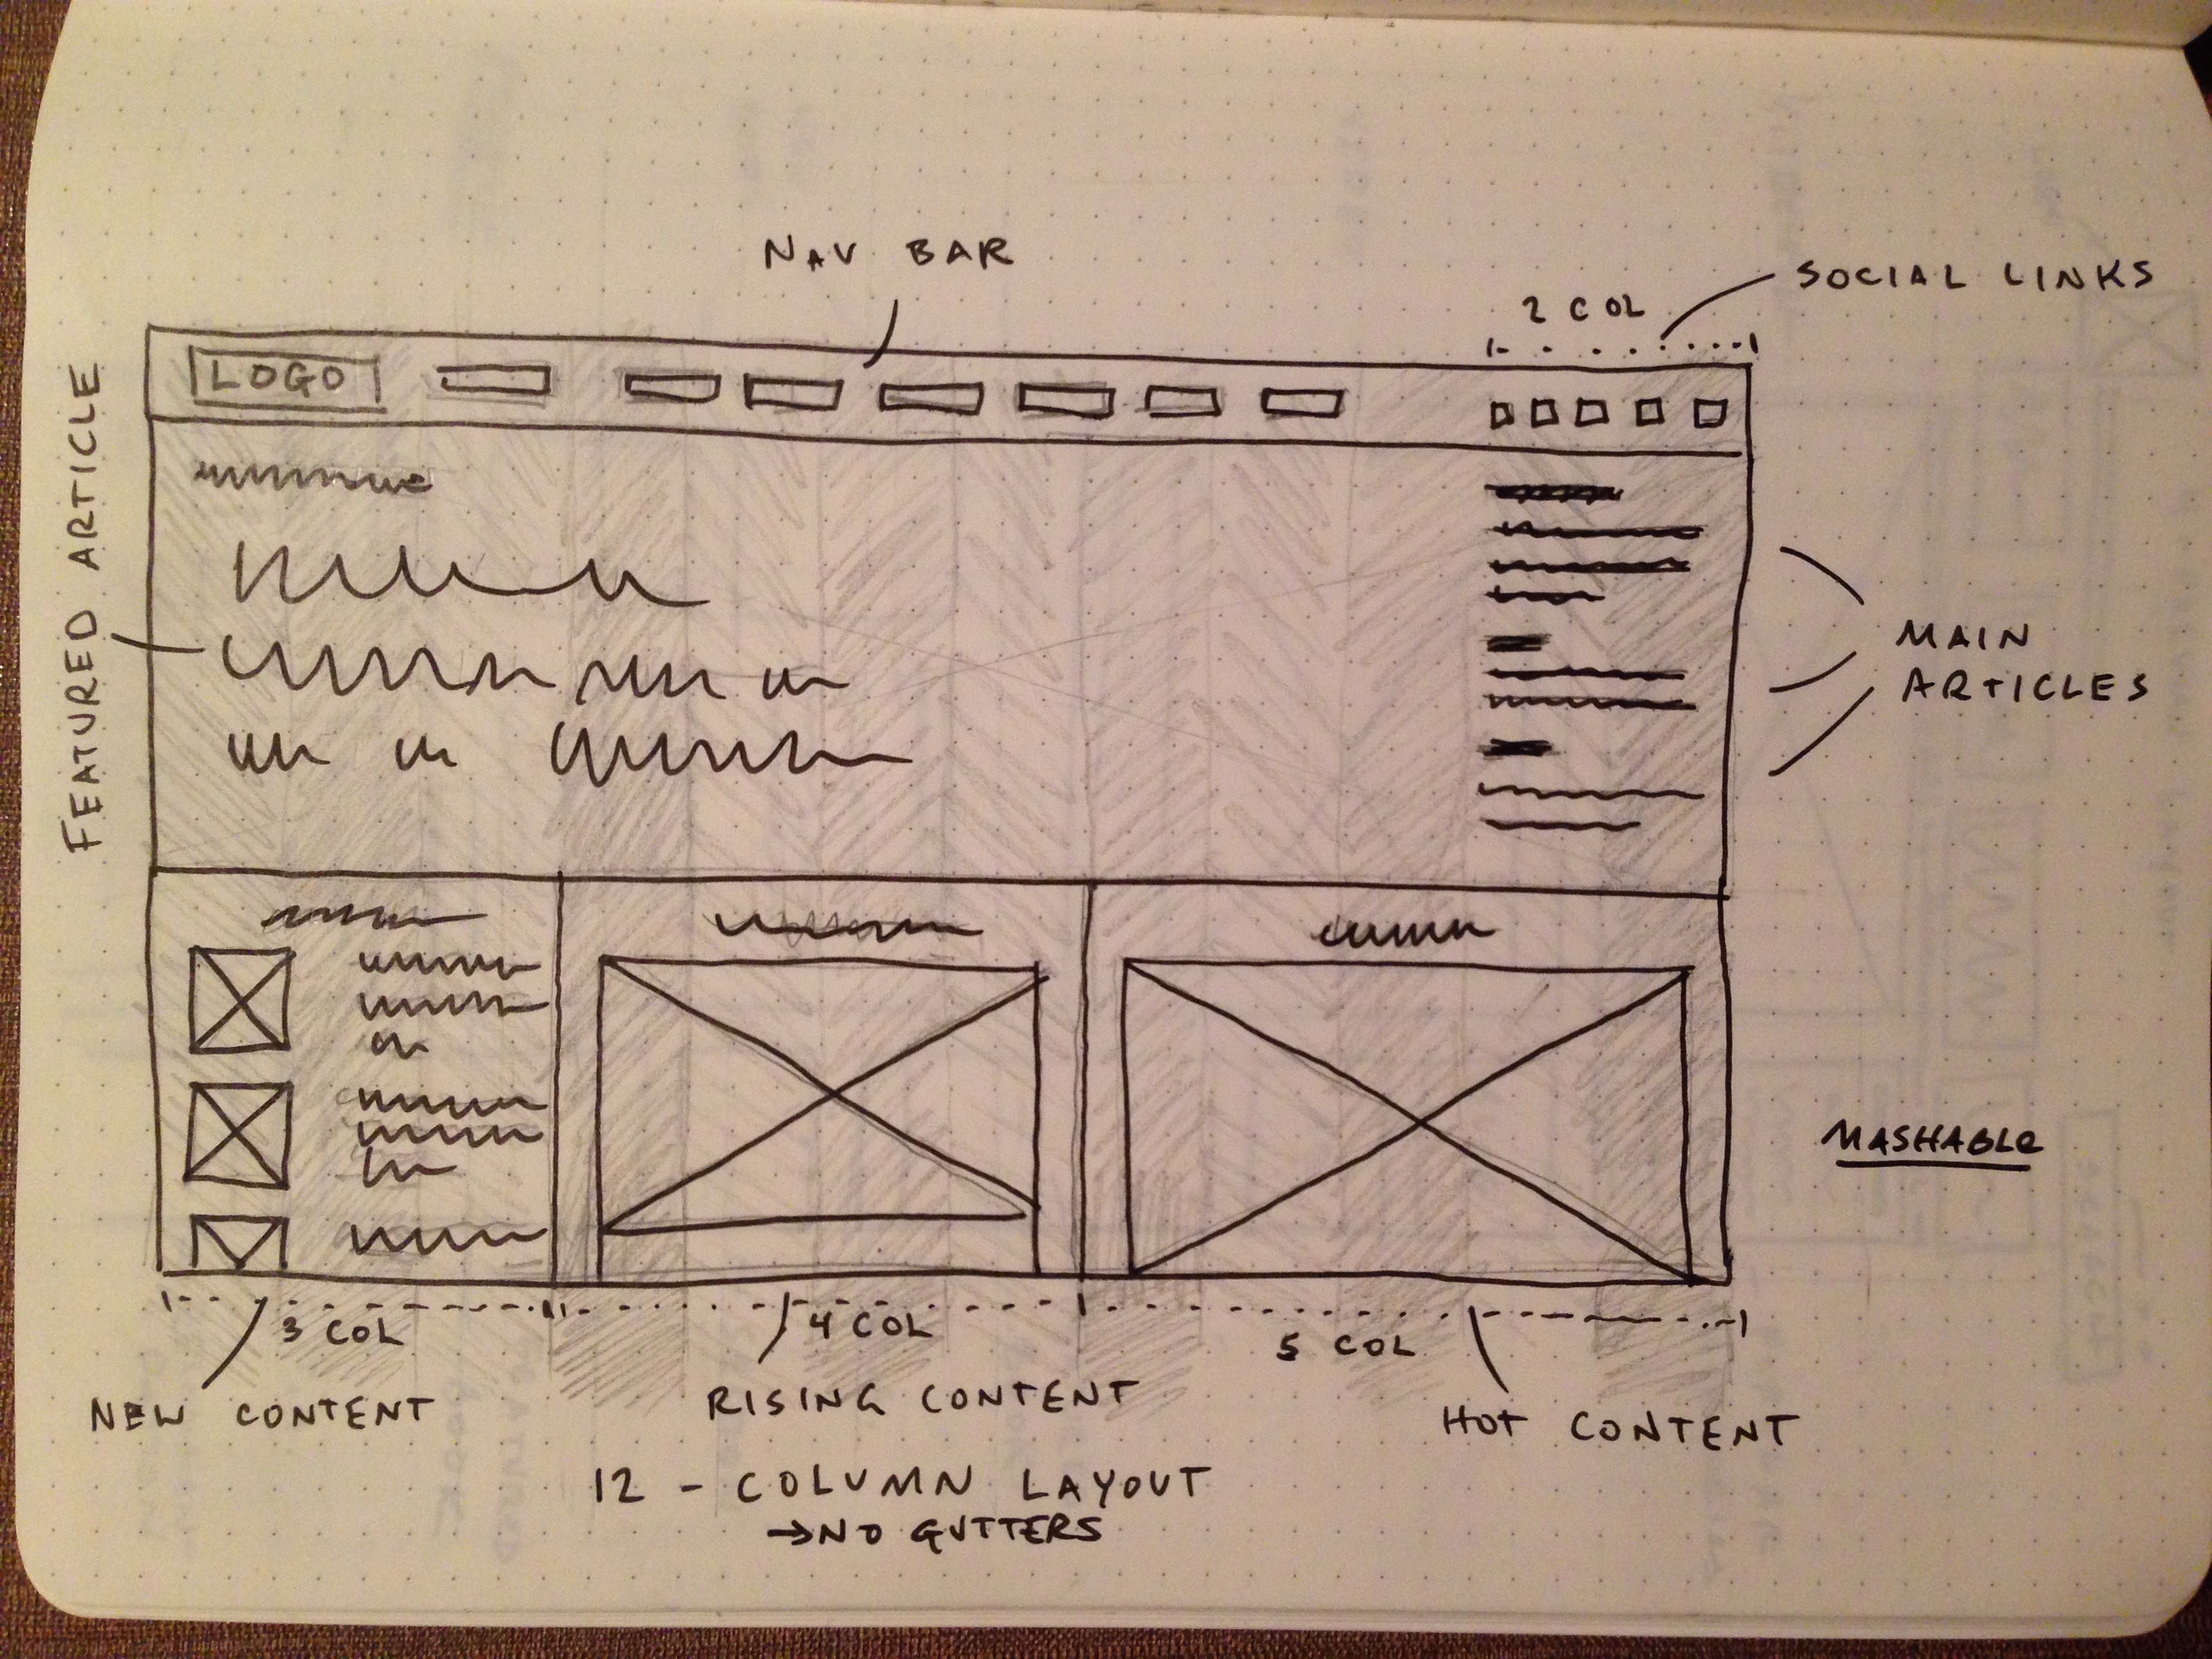 NAV BAR
SOCIAL LINKS
2 COL
LOGO
FEATURED ARTICLE
MAIN
ARTICLES
MASHABLE
3 COL
4 COL
5 COL
NEW CONTENT
RISING CONTENT
HOT CONTENT
12 - COLUMN LAYOUT
→NO GUTTERS